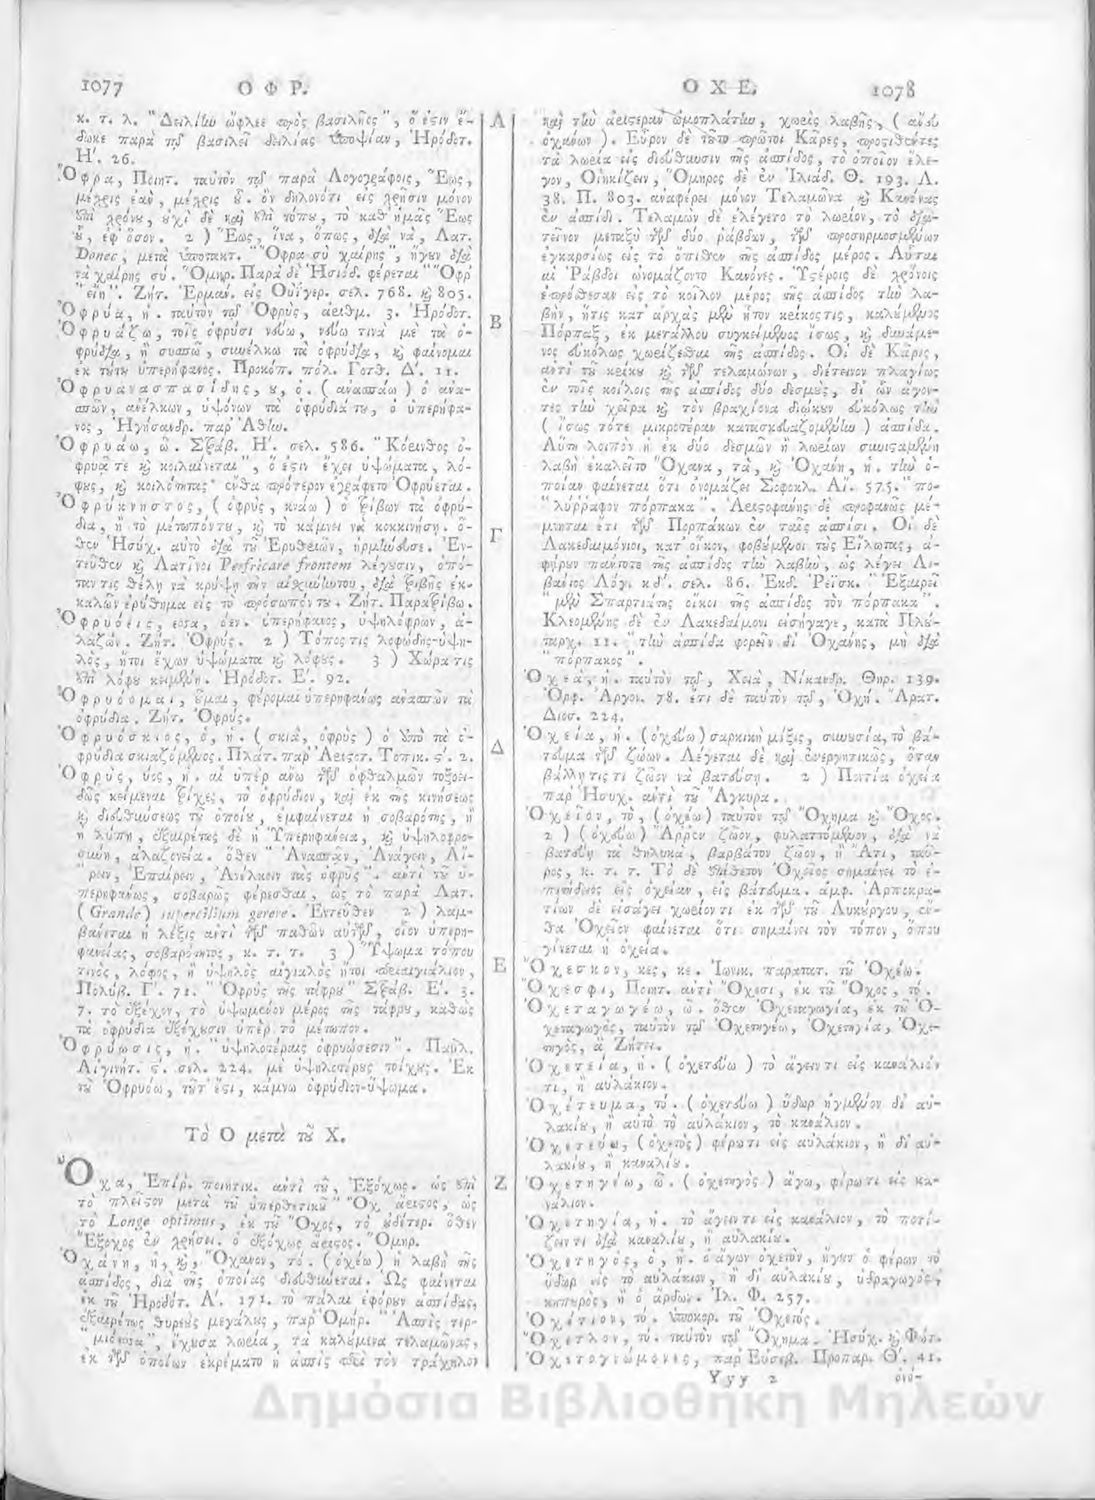 1077 ΟΦΡ.
κ. τ. λ. "Δειλίλω ὦφλεε πρὸς βασιλῆος", ὅ ἐστιν ἔ-
δωκε παρὰ τῷ βασιλεῖ δειλίας ὑποψίαν, Ἡρόδοτ.
Η'. 26.
Ὄφρα, Ποιητ. ταὐτὸν τῷ παρὰ Λογογράφοις, Ἕως,
μέχρις ἐὰν, μέχρις οὗ. ὃν δηλονότι εἰς χρῆσιν μόνον
ἐπὶ χρόνου, οὐχὶ δὲ καὶ ἐπὶ τόπου, τὸ καθ' ἡμᾶς Ἕως
οὗ, ἐφ' ὅσον. 2) Ἕως, ἵνα, ὅπως, διὰ νὰ, Λατ.
Donec, μετὰ ὑποτακτ. "Ὄφρα σὺ χαίρῃς", ἤγουν διὰ
νὰ χαίρῃς σύ. Ὅμηρ. Παρὰ δὲ Ἡσιόδ. φέρεται "Ὄφρ'
"εἴη". Ζήτ. Ἑρμαν. εἰς Οὐΐγερ. σελ. 768. καὶ 805.
Ὀφρύα, ἡ. ταὐτὸν τῷ Ὀφρὺς, ἀριθμ. 3. Ἡρόδοτ.
Ὀφρυάζω, τοῖς ὀφρύσι νεύω, νεύω τινὰ μὲ τὰ ὀ-
φρύδια, ἢ συσπῶ, συνέλκω τὰ ὀφρύδια, καὶ φαίνομαι
ἐκ τούτου ὑπερήφανος. Προκόπ. πόλ. Γοτθ. Δ'. 11.
Ὀφρυανασπασίδης, ου, ὁ. (ἀνασπάω) ὁ ἀνα-
σπῶν, ἀνέλκων, ὑψόνων τὰ ὀφρύδιά του, ὁ ὑπερήφα-
νος, Ἡγήσανδρ. παρ' Ἀθίω.
Ὀφρυάω, ῶ. Στράβ. Η'. σελ. 586. "Κόρινθος ὀ-
φρυᾷ τε καὶ κοιλαίνεται", ὅ ἐστιν ἔχει ὑψώματα, λό-
φους, καὶ κοιλότητας· ἔνθα πρότερον ἐγράφετο Ὀφρύεται.
Ὀφρύκνηστος, (ὀφρὺς, κνάω) ὁ τρίβων τὰ ὀφρύ-
δια, ἢ τὸ μέτωπόντου, καὶ τὸ κάμνει νὰ κοκκινήσῃ. ὅ-
θεν Ἡσύχ. αὐτὸ διὰ τοῦ Ἐρυθριῶν, ἡρμίωευσε. Ἐν-
τεῦθεν καὶ Λατῖνοι Perfricare frontem λέγουσιν, ὁπό-
ταν τις θέλῃ νὰ κρύψῃ τὴν αἰσχύνηντου, διὰ τριβῆς ἐκ-
καλῶν ἐρύθημα εἰς τὸ πρόσωπόντου. Ζήτ. Παρατρίβω.
Ὀφρυόεις, εσσα, όεν. ὑπερήφανος, ὑψηλόφρων, ἀ-
λαζών. Ζήτ. Ὀφρύς. 2) Τόπος τις λοφώδης-ὑψη-
λὸς, ἤτοι ἔχων ὑψώματα καὶ λόφους. 3) Χώρα τις
ἐπὶ λόφου κειμένη. Ἡρόδοτ. Ε'. 92.
Ὀφρυόομαι, οῦμαι, φέρομαι ὑπερηφάνως ἀνασπῶν τὰ
ὀφρύδια. Ζήτ. Ὀφρύς.
Ὀφρυόσκιος, ὁ, ἡ. (σκιὰ, ὀφρὺς) ὁ ὑπὸ τὰ ὀ-
φρύδια σκιαζόμενος. Πλάτ. παρ' Ἀριστοτ. Τοπικ. ς'. 2.
Ὀφρὺς, ύος, ἡ. αἱ ὑπὲρ ἄνω τῶν ὀφθαλμῶν τοξοει-
δῶς κείμεναι τρίχες, τὸ ὀφρύδιον, καὶ ἐκ τῆς κινήσεως
καὶ διευθύνσεως τοῦ ὁποίου, ἐμφαίνεται ἡ σοβαρότης, ἢ
ἡ λύπη, ἐξαιρέτως δὲ ἡ Ὑπερηφάνεια, καὶ ὑψηλοφρο-
σύνη, ἀλαζονεία. ὅθεν "Ἀνασπᾶν, Ἀνάγειν, Αἴ-
"ρειν, Ἐπαίρειν, Ἀνέλκειν τὰς ὀφρῦς". ἀντὶ τοῦ ὑ-
περηφάνως, σοβαρῶς φέρεσθαι, ὡς τὸ παρὰ Λατ.
(Grande) supercilium gerere. Ἐντεῦθεν 2) λαμ-
βάνεται ἡ λέξις ἀντὶ τῶν παθῶν αὐτῶν, οἷον ὑπερη-
φανείας, σοβαρότητος, κ. τ. τ. 3) Ὕψωμα τόπου
τινὸς, λόφος, ἢ ὑψηλὸς αἰγιαλὸς ἤτοι περιαιγιάλιον,
Πολύβ. Γ'. 71. "Ὀφρὺς τῆς τάφρου" Στράβ. Ε'. 3.
7. τὸ ἐξέχον, τὸ ὑψωμένον μέρος τῆς τάφρου, καθὼς
τὰ ὀφρύδια ἐξέχουσιν ὑπὲρ τὸ μέτωπον.
Ὀφρύωσις, ἡ. "ὑψηλοτέραις ὀφρυώσεσιν". Παῦλ.
Αἰγινήτ. ς'. σελ. 224. μὲ ὑψηλοτέρους τοίχους. Ἐκ
τοῦ Ὀφρυόω, τοῦτ' ἔστι, κάμνω ὀφρύδιον-ὕψωμα.
Τὸ Ο μετὰ τοῦ Χ.
Ὄχα, Ἐπίρ. ποιητικ. ἀντὶ τοῦ, Ἐξόχως. ὡς ἐπὶ
τὸ πλεῖστον μετὰ τοῦ ὑπερθετικοῦ "Ὄχ' ἄριστος, ὡς
τὸ Longe optimus, ἐκ τοῦ Ὄχος, τὸ οὐδέτερ. ὅθεν
Ἔξοχος ἐν χρήσει. ὁ ἐξόχως ἄριστος. Ὅμηρ.
Ὀχάνη, ἡ, καὶ, Ὄχανον, τό. (ὀχέω) ἡ λαβὴ τῆς
ἀσπίδος, διὰ τῆς ὁποίας διευθύνεται. Ὡς φαίνεται
ἐκ τοῦ Ἡροδότ. Α'. 171. τὸ πάλαι ἐφόρουν ἀσπίδας,
ἐξαιρέτως θυρεοὺς μεγάλους, παρ' Ὁμήρ. "Ἀσπὶς τερ-
"μιόεσσα", ἔχουσα λωρία, τὰ καλούμενα τελαμῶνας,
ἐκ τῶν ὁποίων ἐκρέματο ἡ ἀσπὶς περὶ τὸν τράχηλον
Α
Β
Γ
Δ
Ε
Ζ
ΟΧΕ. 1078
καὶ τὴν ἀριστερὰν ὠμοπλάτην, χωρὶς λαβῆς, (ἄνευ
ὀχάνων). Εὗρον δὲ τοῦτο πρῶτοι Κᾶρες, προστιθέντες
τὰ λωρία εἰς διεύθυνσιν τῆς ἀσπίδος, τὸ ὁποῖον ἔλε-
γον, Οἰηκίζειν, Ὅμηρος δὲ ἐν Ἰλιάδ. Θ. 193. Λ.
38. Π. 803. ἀναφέρει μόνον Τελαμῶνα καὶ Κανόνας
ἐν ἀσπίδι. Τελαμὼν δὲ ἐλέγετο τὸ λωρίον, τὸ δια-
τεῖνον μεταξὺ τῶν δύο ῥάβδων, τῶν προσηρμοσμένων
ἐγκαρσίως εἰς τὸ ὄπισθεν τῆς ἀσπίδος μέρος. Αὗται
αἱ Ῥάβδοι ὠνομάζοντο Κανόνες. Ὑστέροις δὲ χρόνοις
ἐπρόσθεσαν εἰς τὸ κοῖλον μέρος τῆς ἀσπίδος τὴν λα-
βὴν, ἥτις κατ' ἀρχὰς μὲν ἦτον κρίκος τις, καλούμενος
Πόρπαξ, ἐκ μετάλλου συγκείμενος ἴσως, καὶ δυνάμε-
νος εὐκόλως χωρίζεσθαι τῆς ἀσπίδος. Οἱ δὲ Κᾶρες,
ἀντὶ τοῦ κρίκου καὶ τῶν τελαμώνων, διέτεινον πλαγίως
ἐν τοῖς κοίλοις τῆς ἀσπίδος δύο δεσμοὺς, δι' ὧν ἄγον-
τες τὴν χεῖρα καὶ τὸν βραχίονα διῴκουν εὐκόλως τὴν
(ἴσως τότε μικροτέραν κατασκευαζομένην) ἀσπίδα.
Αὕτη λοιπὸν ἡ ἐκ δύο δεσμῶν ἢ λωρίων συνισταμένη
λαβὴ ἐκαλεῖτο Ὄχανα, τὰ, καὶ Ὀχάνη, ἡ. τὴν ὁ-
ποίαν φαίνεται ὅτι ὀνομάζει Σοφοκλ. Αἴ. 575. "πο-
"λύρραφον πόρπακα". Ἀριστοφάνης δὲ προφανῶς μέ-
μνηται ἔτι τῶν Πορπάκων ἐν ταῖς ἀσπίσι. Οἱ δὲ
Λακεδαιμόνιοι, κατ' οἶκον, φοβούμενοι τοὺς Εἵλωτας, ἀ-
φῄρουν πάντοτε τῆς ἀσπίδος τὴν λαβὴν, ὡς λέγει Λι-
βάνιος Λόγ. κδ'. σελ. 86. Ἐκδ. Ρεΐσκ. "Ἐξαιρεῖ
"μὲν Σπαρτιάτης οἴκοι τῆς ἀσπίδος τὸν πόρπακα".
Κλεομένης δὲ ἐν Λακεδαίμονι εἰσήγαγε, κατὰ Πλού-
ταρχ. 11. "τὴν ἀσπίδα φορεῖν δι' Ὀχάνης, μὴ διὰ
"πόρπακος".
Ὀχεὰ, ἡ. ταὐτὸν τῷ, Χειὰ, Νίκανδρ. Θηρ. 139.
Ὀρφ. Ἀργον. 78. ἔτι δὲ ταὐτὸν τῷ, Ὀχή. Ἄρατ.
Διοσ. 224.
Ὀχεία, ἡ. (ὀχεύω) σαρκικὴ μίξις, συνουσία, τὸ βά-
τευμα τῶν ζώων. Λέγεται δὲ καὶ ἐνεργητικῶς, ὅταν
βάλλῃ τις τι ζῶον νὰ βατεύσῃ. 2) Ποντία ὀχεία
παρ' Ἡσυχ. ἀντὶ τοῦ Ἄγκυρα.
Ὀχεῖον, τὸ, (ὀχέω) ταὐτὸν τῷ Ὄχημα καὶ Ὄχος.
2) (ὀχεύω) Ἄρρεν ζῶον, φυλαττόμενον, διὰ νὰ
βατεύῃ τὰ θηλυκὰ, βαρβάτον ζῶον, ἢ Ἄτι, ταῦ-
ρος, κ. τ. τ. Τὸ δὲ ἐπίθετον Ὀχεῖος σημαίνει τὸ ἐ-
πιτήδειος εἰς ὀχείαν, εἰς βάτευμα. ἀμφ. Ἁρποκρα-
τίων δὲ εἰσάγει χωρίον τι ἐκ τῶν τοῦ Λυκούργου, ἔν-
θα Ὀχεῖον φαίνεται ὅτι σημαίνει τὸν τόπον, ὅπου
γίνεται ἡ ὀχεία.
Ὄχεσκον, κες, κε. Ἰωνικ. παρατατ. τοῦ Ὀχέω.
Ὄχεσφι, Ποιητ. ἀντὶ Ὄχεσι, ἐκ τοῦ Ὄχος, τό.
Ὀχεταγωγέω, ῶ. ὅθεν Ὀχεταγωγία, ἐκ τοῦ Ὀ-
χεταγωγὸς, ταὐτὸν τῷ Ὀχετηγέω, Ὀχετηγία, Ὀχε-
τηγὸς, ἃ Ζήτει.
Ὀχετεία, ἡ. (ὀχετεύω) τὸ ἄγειν τι εἰς κανάλιόν
τι, ἢ αὐλάκιον.
Ὀχέτευμα, τό. (ὀχετεύω) ὕδωρ ἠγμένον δι' αὐ-
λακίου, ἢ αὐτὸ τὸ αὐλάκιον, τὸ κανάλιον.
Ὀχετεύω, (ὀχετὸς) φέρω τι εἰς αὐλάκιον, ἢ δι' αὐ-
λακίου, ἢ καναλίου.
Ὀχετηγέω, ῶ. (ὀχετηγὸς) ἄγω, φέρω τι εἰς κα-
νάλιον.
Ὀχετηγία, ἡ. τὸ ἄγειν τι εἰς κανάλιον, τὸ ποτί-
ζειν τι διὰ καναλίου, ἢ αὐλακίου.
Ὀχετηγὸς, ὁ, ἡ. ὁ ἄγων ὀχετὸν, ἤγουν ὁ φέρων τὸ
ὕδωρ εἰς τὸ αὐλάκιον, ἢ δι' αὐλακίου, ὑδραγωγὸς,
κηπουρὸς, ἢ ὁ ἄρδων. Ἰλ. Φ. 257.
Ὀχέτιον, τό. ὑποκορ. τοῦ Ὀχετός.
Ὄχετλον, τό. ταὐτὸν τῷ Ὄχημα. Ἡσύχ. καὶ Φώτ.
Ὀχετογνώμονες, παρ' Εὐσεβ. Προπαρ. Θ'. 41.
Yyy 2 ὀνό-
Δημόσια Βιβλιοθήκη Μηλεών